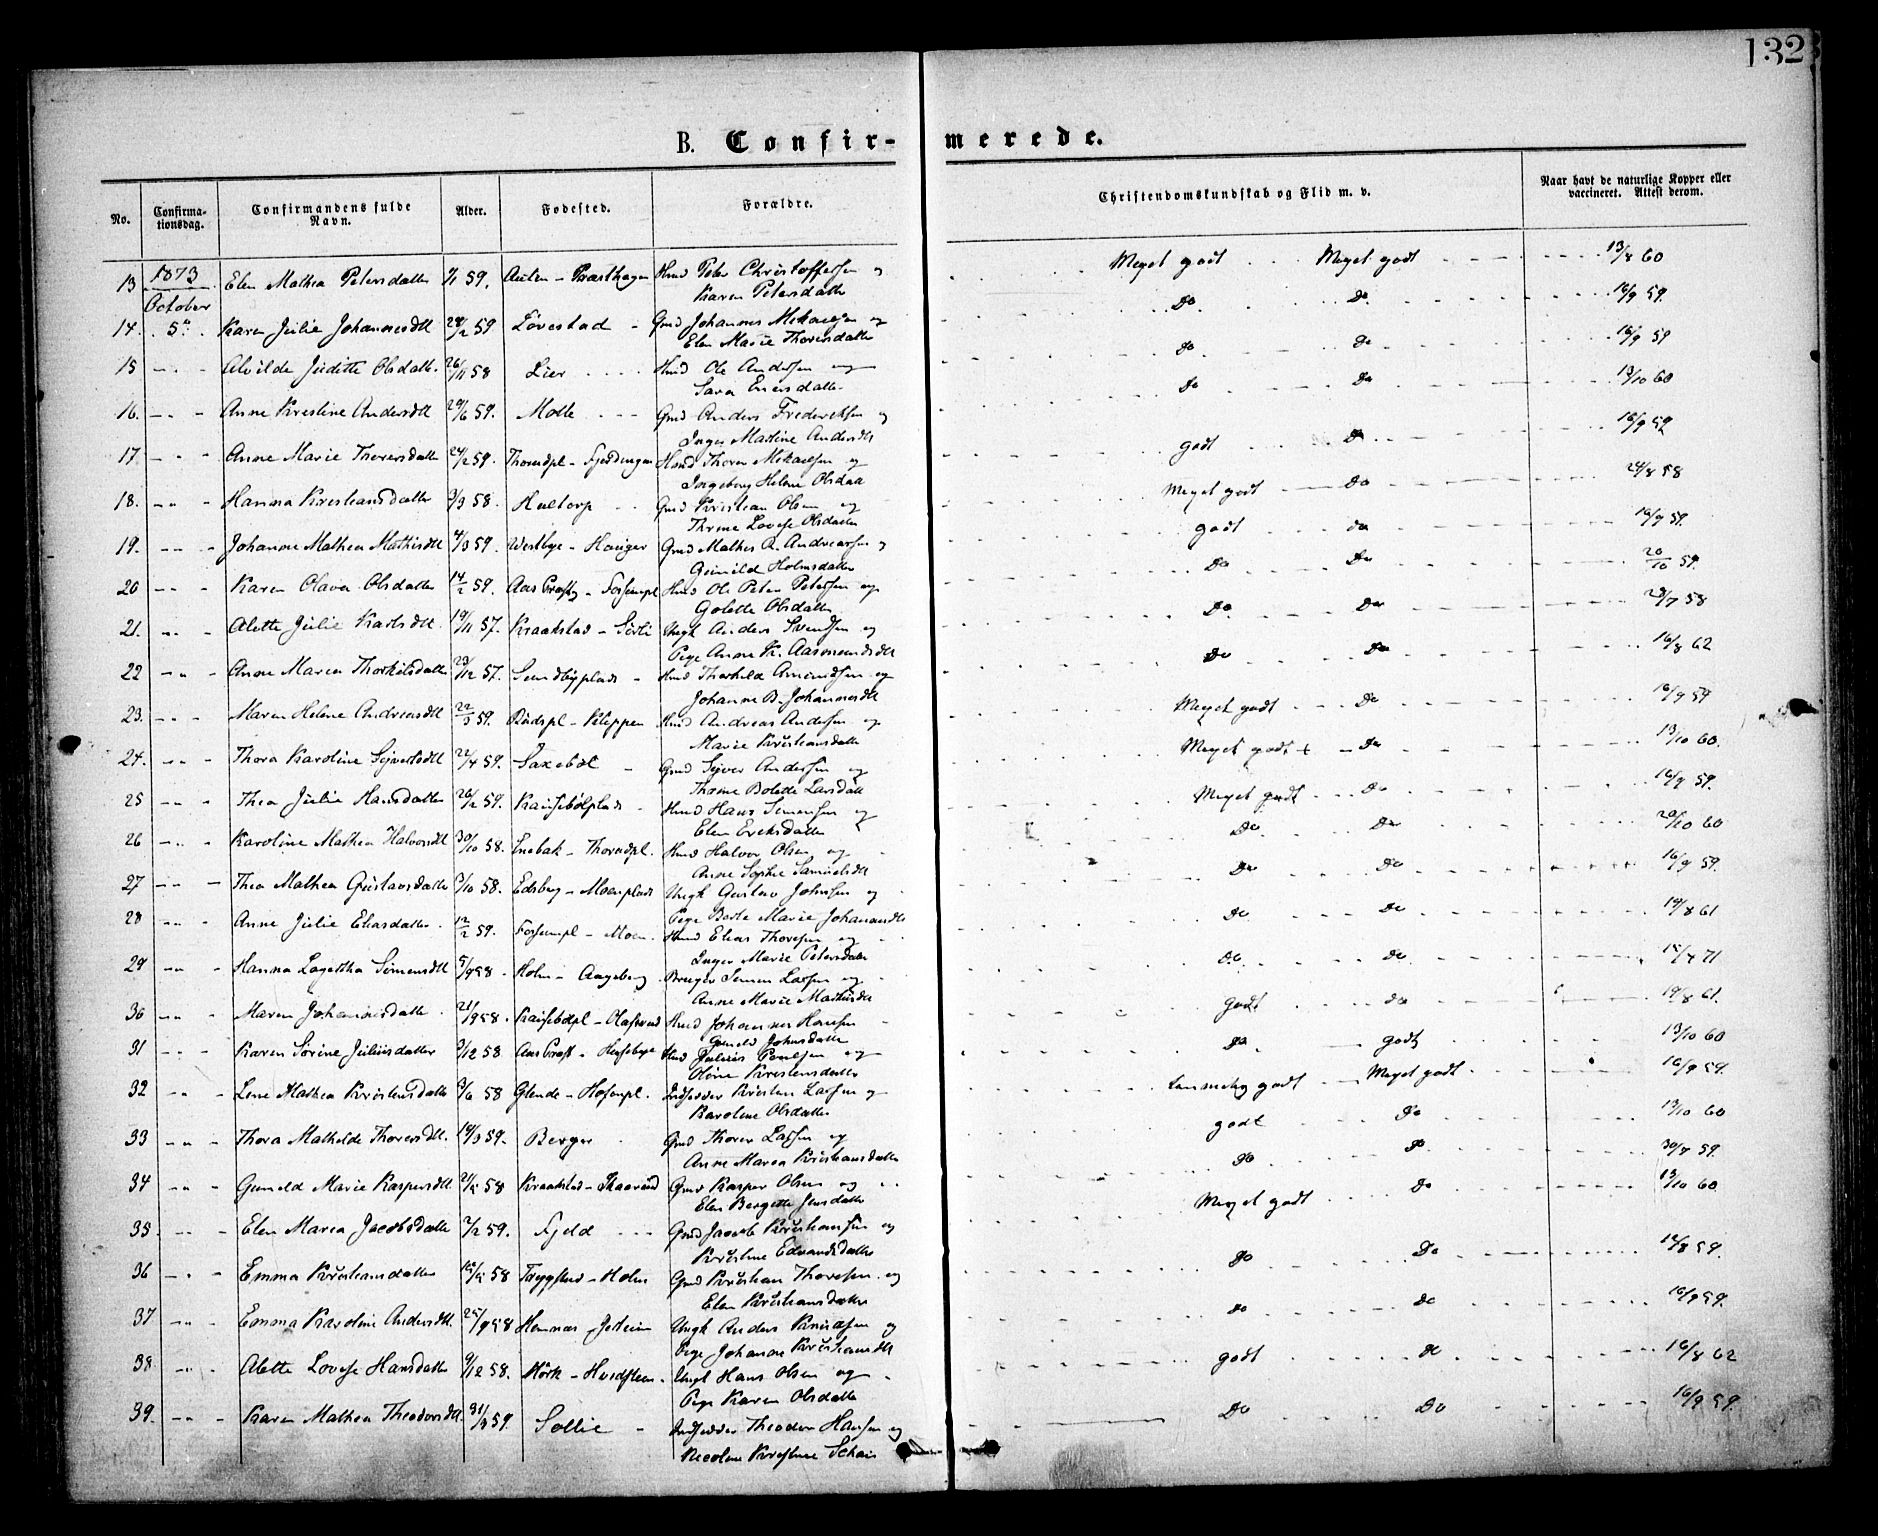 132
B. Confir- merede.
No. Confirma-tionsdag. Confirmandens fulde Navn. Alder. Fødested. Forældre. Christendomskundskab og Flid m. v. Naar havt de naturlige Kopper eller vaccineret. Attest derom.
13 1873 Elen Mathea Petersdatter 59. Husd Peter Christoffersen og Meget godt Meget godt 13/8 60
October Karen Petersdatter
14. 5te Karen Julie Johannesdtt 59 Løvestad Gmd Johannes Mikaelsen og Do Do 16/9 59.
Elen Marie Thorersdatter
15 Alvilde Juditte Olsdatter 26/11 58 Lier Husd Ole Andersen og Do Do 16/9 59
Sara Enersdatter
16. Anne Kristine Andersdtt 59. Molle Gmd Anders Frederiksen og Do Do 13/10 60
Inger Martine Andersdt
17 Anne Marie Thorersdatter 24/2 59. Thorudpl - Husd Thorer Mikaelsen og godt Do 16/9 59
Ingeborg Helene Olsdatt
18. Hanna Kristiansdatter 3/9 58. Gmd Kristian Olsen og Meget godt Do 24/8 58
Thrine Lovise Olsdatter
19. Johanne Mathea Mathisdtt 4/3 59. Westbye - Gmd Mathis A. Andreassen og godt do 16/9 59.
Gunild Holmsdatter
20 Karen Olava Olsdatter 14/2 59. Aas Præstg - Husd Ole Peter Petersen og Do Do 20/10 59.
Golette Olsdatter
21. Alette Julie Karlsdtt. 19/11 57. Kraakstad - Ungk Anders Svendsen og Do Do 28/7 58
Pige Anne K. Aasmundsdtt
22 Anne Maria Thorkilsdatter 29/12 57. Sundbyplads Husd Thorkild Amundsen og Do Do 16/8 62
Johanne B. Johannesdtt
23. Maren Helene Andreasdtt 22/3 59. - Kleppen Husd Andreas Andersen og Meget godt Do 16/9 59
Marie Kristiansdatter
24. Thora Karoline Sejversdtt 22/4 59. Saxebøl Gmd Sejver Andersen og Meget godt + Do 13/10 60.
Thrine Bolette Larsdatt
25 Thea Julie Hansdatter 26/2 59. Husd Hans Simensen og Meget godt Do 16/9 59.
Elen Eriksdatter
26 Karoline Mathea Halvorsdtt 30/10 58. Enebak - Thorudpl. Husd Halvor Olsen og Do Do 20/10 60
Anne Sophie Samuelsdtt
27 Thea Mathea Gustavsdatter 3/10 58. Edsberg - Moenplads Ungk Gustav Johnsen og Do Do 16/9 59.
Pige Berte Marie Johannesdtt
28 Anne Julie Eliasdatter 12/2 59. - Moen. Husd Elias Thoresen og Do Do 19/8 61
Inger Marie Petersdatter
29 Hanna Lagertha Simensdtt 5/9 58 Holm - Bruger Simen Larsen og Do do 15/4 71
Anne Marie Mathisdt
30 Maren Johannesdatter 21/9 58. Husd Johannes Hansen godt do 19/8 61.
Gunild Johnsdatter
31 Karen Sorine Juliusdatter 9/12 58 Aas Præst - Husebye Husd Julius Poulsen og Do godt 13/10 60
Oline Kristensdatter
32 Lene Mathea Kristensdatter 3/6 58 Glende - Hofenpl. Indsidder Kristen Larsen og Temmelig godt Meget godt 16/9 59.
Karoline Olsdatter
33 Thora Mathilde Thorersdtt. 19/3 59. Berger Gmd Thorer Larsen og godt Do 13/10 60
Anne Maria Kristiansdatter
34 Gunild Marie Kaspersdtt 58 Kraakstad - Skaarud Gmd Kasper Olsen og Do Do 30/7 59.
Elen Bergitte Jensdatter
35. Elen Maria Jacobsdatter 7/2 59. Fjeld Gmd Jacob Kristiansen og Meget godt Do 13/10 60
Kristine Edvardsdatter
36 Emma Kristiansdatter 58 Trygstad - Holm Gmd Kristian Thoresen og Do Do 12/8 59.
Elen Kristiansdatter
37. Emma Karoline Andersdtt. 25/9 58 Hemnæs - Ungk Anders Knudsen og Do Do 16/9 59.
Pige Johanne Kristiansdtt
38. Alette Lovise Hansdatter 9/12 58. Mörk - Hvidsteen Ungk Hans Olsen og godt do 16/8 62
Pige Karen Olsdatter
39. Karen Mathea Theodorsdtt 31/3 59. Sollie Indsidder Theodor Hansen og Do Do 16/9 59.
Nicoline Kristine